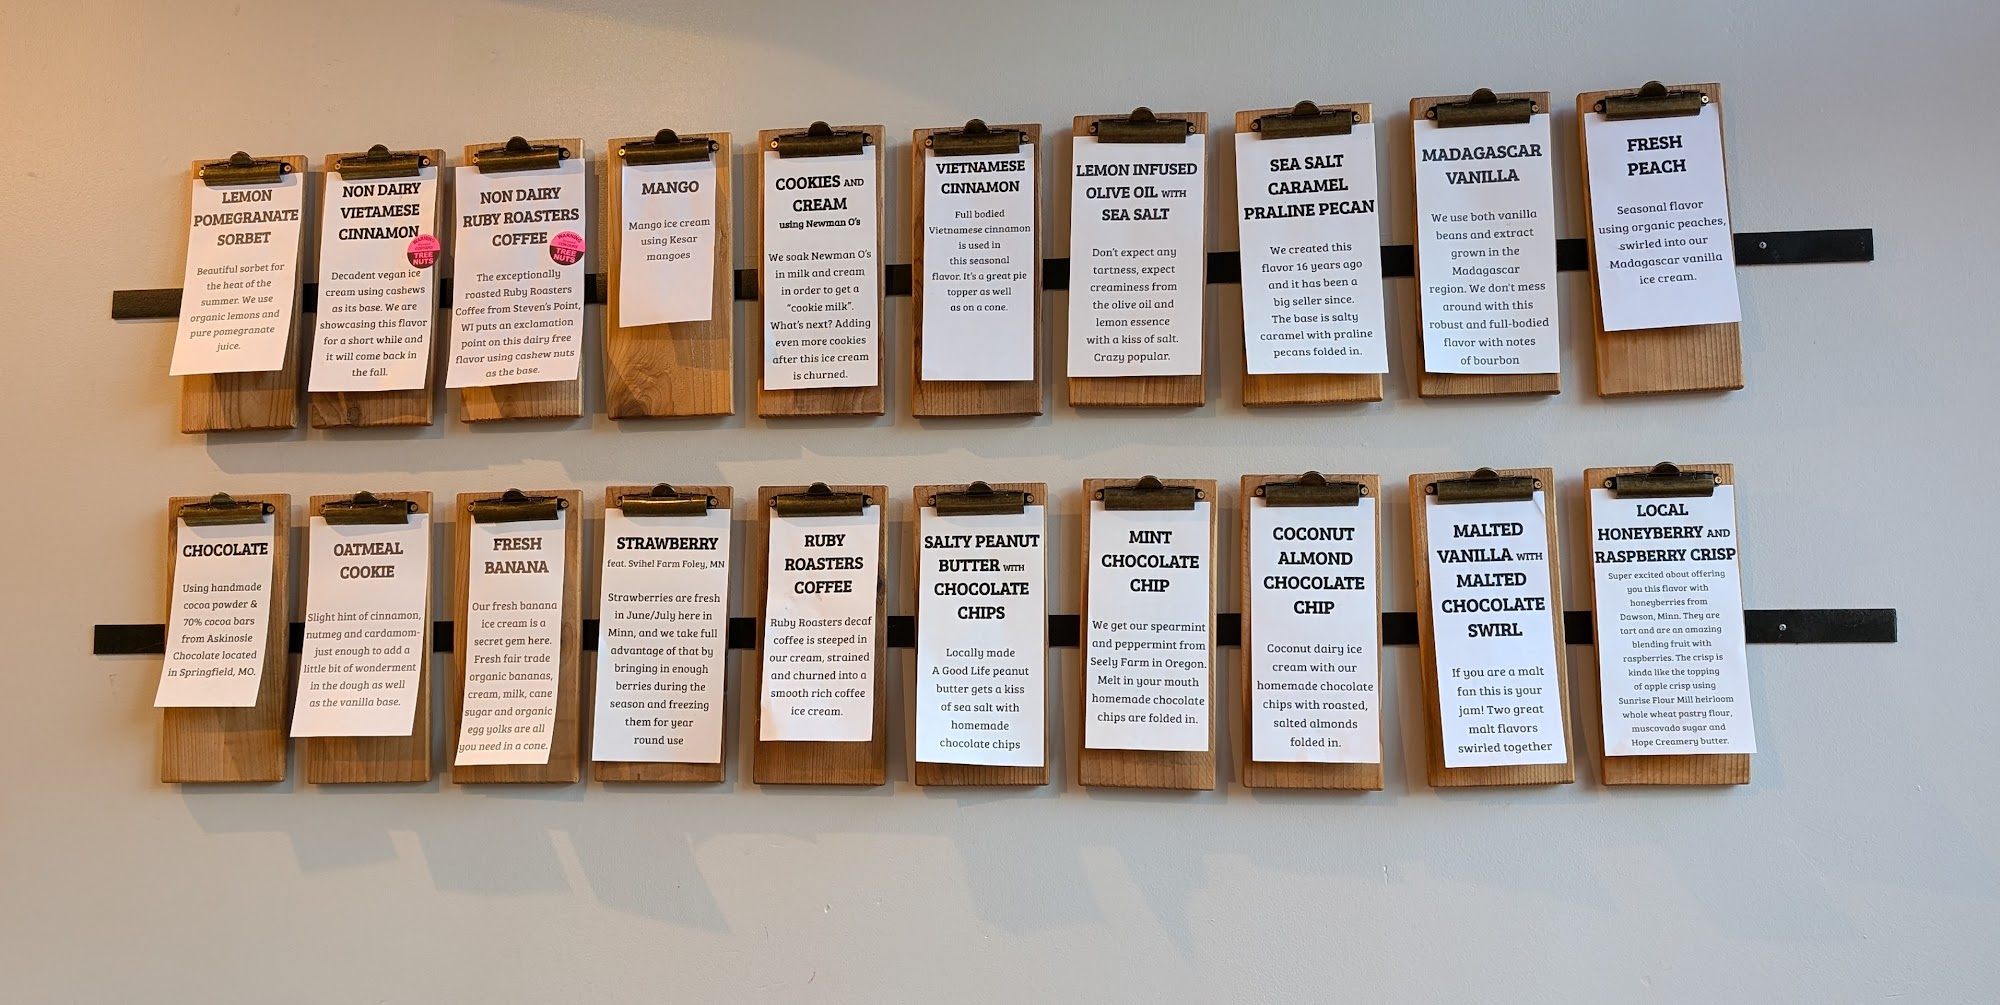 LEMON
POMEGRANATE
SORBET
Beautiful sorbet for
the heat of the
summer. We use
organic lemons and
pure pomegranate
juice.
NON DAIRY
VIETAMESE
CINNAMON
WARNING
TREE
NUTS
Decadent vegan ice
cream using cashews
as its base. We are
showcasing this flavor
for a short while and
it will come back in
the fall.
NON DAIRY
RUBY ROASTERS
COFFEE
WARNING
TREE
NUTS
The exceptionally
roasted Ruby Roasters
Coffee from Steven's Point,
WI puts an exclamation
point on this dairy free
flavor using cashew nuts
as the base.
MANGO
Mango ice cream
using Kesar
mangoes
COOKIES AND
CREAM
using Newman O's
We soak Newman O's
in milk and cream
in order to get a
"cookie milk".
What's next? Adding
even more cookies
after this ice cream
is churned.
VIETNAMESE
CINNAMON
Full bodied
Vietnamese cinnamon
is used in
this seasonal
flavor. It's a great pie
topper as well
as on a cone.
LEMON INFUSED
OLIVE OIL WITH
SEA SALT
Don't expect any
tartness, expect
creaminess from
the olive oil and
lemon essence
with a kiss of salt.
Crazy popular.
SEA SALT
CARAMEL
PRALINE PECAN
We created this
flavor 16 years ago
and it has been a
big seller since.
The base is salty
caramel with praline
pecans folded in.
MADAGASCAR
VANILLA
We use both vanilla
beans and extract
grown in the
Madagascar
region. We don't mess
around with this
robust and full-bodied
flavor with notes
of bourbon
FRESH
PEACH
Seasonal flavor
using organic peaches,
swirled into our
Madagascar vanilla
ice cream.
CHOCOLATE
Using handmade
cocoa powder &
70% cocoa bars
from Askinosie
Chocolate located
in Springfield, MO.
OATMEAL
COOKIE
Slight hint of cinnamon,
nutmeg and cardamom-
just enough to add a
little bit of wonderment
in the dough as well
as the vanilla base.
FRESH
BANANA
Our fresh banana
ice cream is a
secret gem here.
Fresh fair trade
organic bananas,
cream, milk, cane
sugar and organic
egg yolks are all
you need in a cone.
STRAWBERRY
feat. Svihel Farm Foley, MN
Strawberries are fresh
in June/July here in
Minn, and we take full
advantage of that by
bringing in enough
berries during the
season and freezing
them for year
round use
RUBY
ROASTERS
COFFEE
Ruby Roasters decaf
coffee is steeped in
our cream, strained
and churned into a
smooth rich coffee
ice cream.
SALTY PEANUT
BUTTER WITH
CHOCOLATE
CHIPS
Locally made
A Good Life peanut
butter gets a kiss
of sea salt with
homemade
chocolate chips
MINT
CHOCOLATE
CHIP
We get our spearmint
and peppermint from
Seely Farm in Oregon.
Melt in your mouth
homemade chocolate
chips are folded in.
COCONUT
ALMOND
CHOCOLATE
CHIP
Coconut dairy ice
cream with our
homemade chocolate
chips with roasted,
salted almonds
folded in.
MALTED
VANILLA WITH
MALTED
CHOCOLATE
SWIRL
If you are a malt
fan this is your
jam! Two great
malt flavors
swirled together
LOCAL
HONEYBERRY AND
RASPBERRY CRISP
Super excited about offering
you this flavor with
honeyberries from
Dawson, Minn. They are
tart and are an amazing
blending fruit with
raspberries. The crisp is
kinda like the topping
of apple crisp using
Sunrise Flour Mill heirloom
whole wheat pastry flour,
muscovado sugar and
Hope Creamery butter.